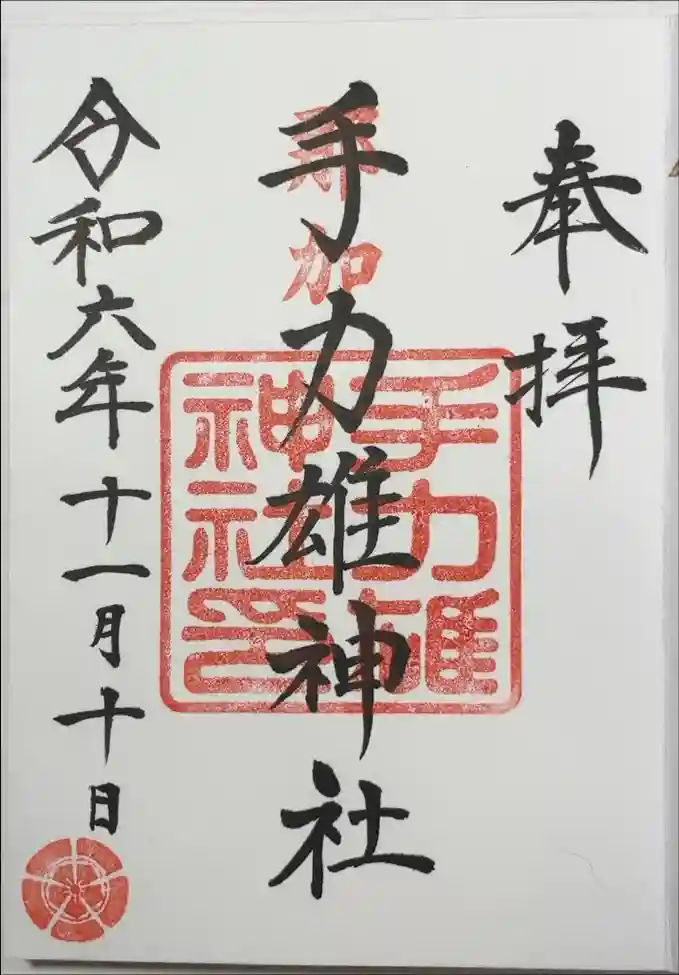 奉拝
那加
手力雄神社
手力雄神社印
令和六年十一月十日